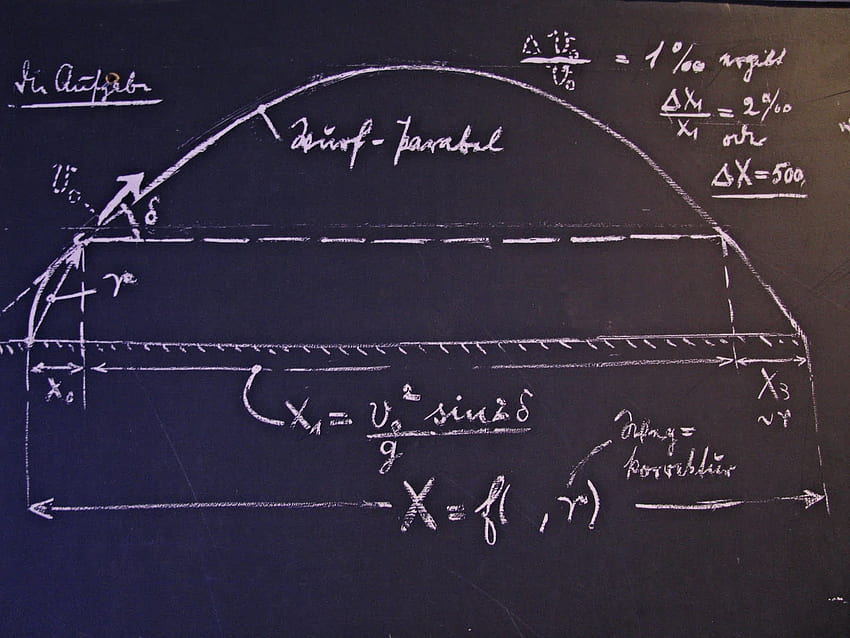 Die Aufgabe
Δ v₀ / v₀ = 1 ‰ ergibt
ΔX₁ / X₁ = 2 ‰
oder
ΔX = 500
Wurf-parabel
v₀
δ
r
X₀
X₁ = v₀² sin 2δ / g
X₃
~r
Weg=
korrektur
X = f( , r)